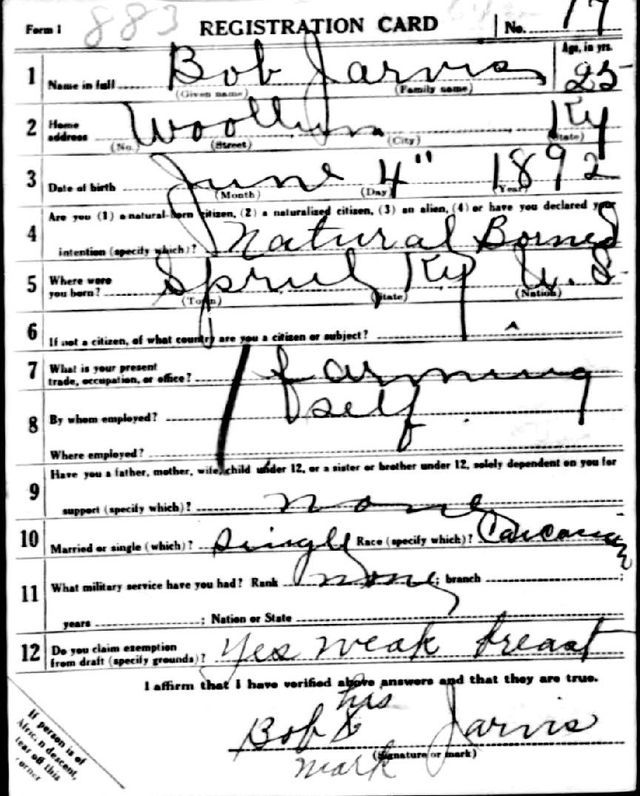 Form 1 883 REGISTRATION CARD No. 17
1 Name in full Bob Jarvis Age, in yrs. 25
(Given name) (Family name)
2 Home address Woollum Ky
(No.) (Street) (City) (State)
3 Date of birth June 4" 1892
(Month) (Day) (Year)
4 Are you (1) a natural-born citizen, (2) a naturalized citizen, (3) an alien, (4) or have you declared your
intention (specify which)? Natural Borned
5 Where were you born? Ky U.S
(Town) (State) (Nation)
6 If not a citizen, of what country are you a citizen or subject?
7 What is your present trade, occupation, or office? farming
8 By whom employed? self
Where employed?
9 Have you a father, mother, wife, child under 12, or a sister or brother under 12, solely dependent on you for
support (specify which)? none
10 Married or single (which)? single Race (specify which)? Caucasian
11 What military service have you had? Rank none ; branch ;
years ; Nation or State
12 Do you claim exemption from draft (specify grounds)? Yes weak breast
I affirm that I have verified above answers and that they are true.
his
Bob X Jarvis
(Signature or mark)
mark
If person is of
African descent,
tear off this
corner